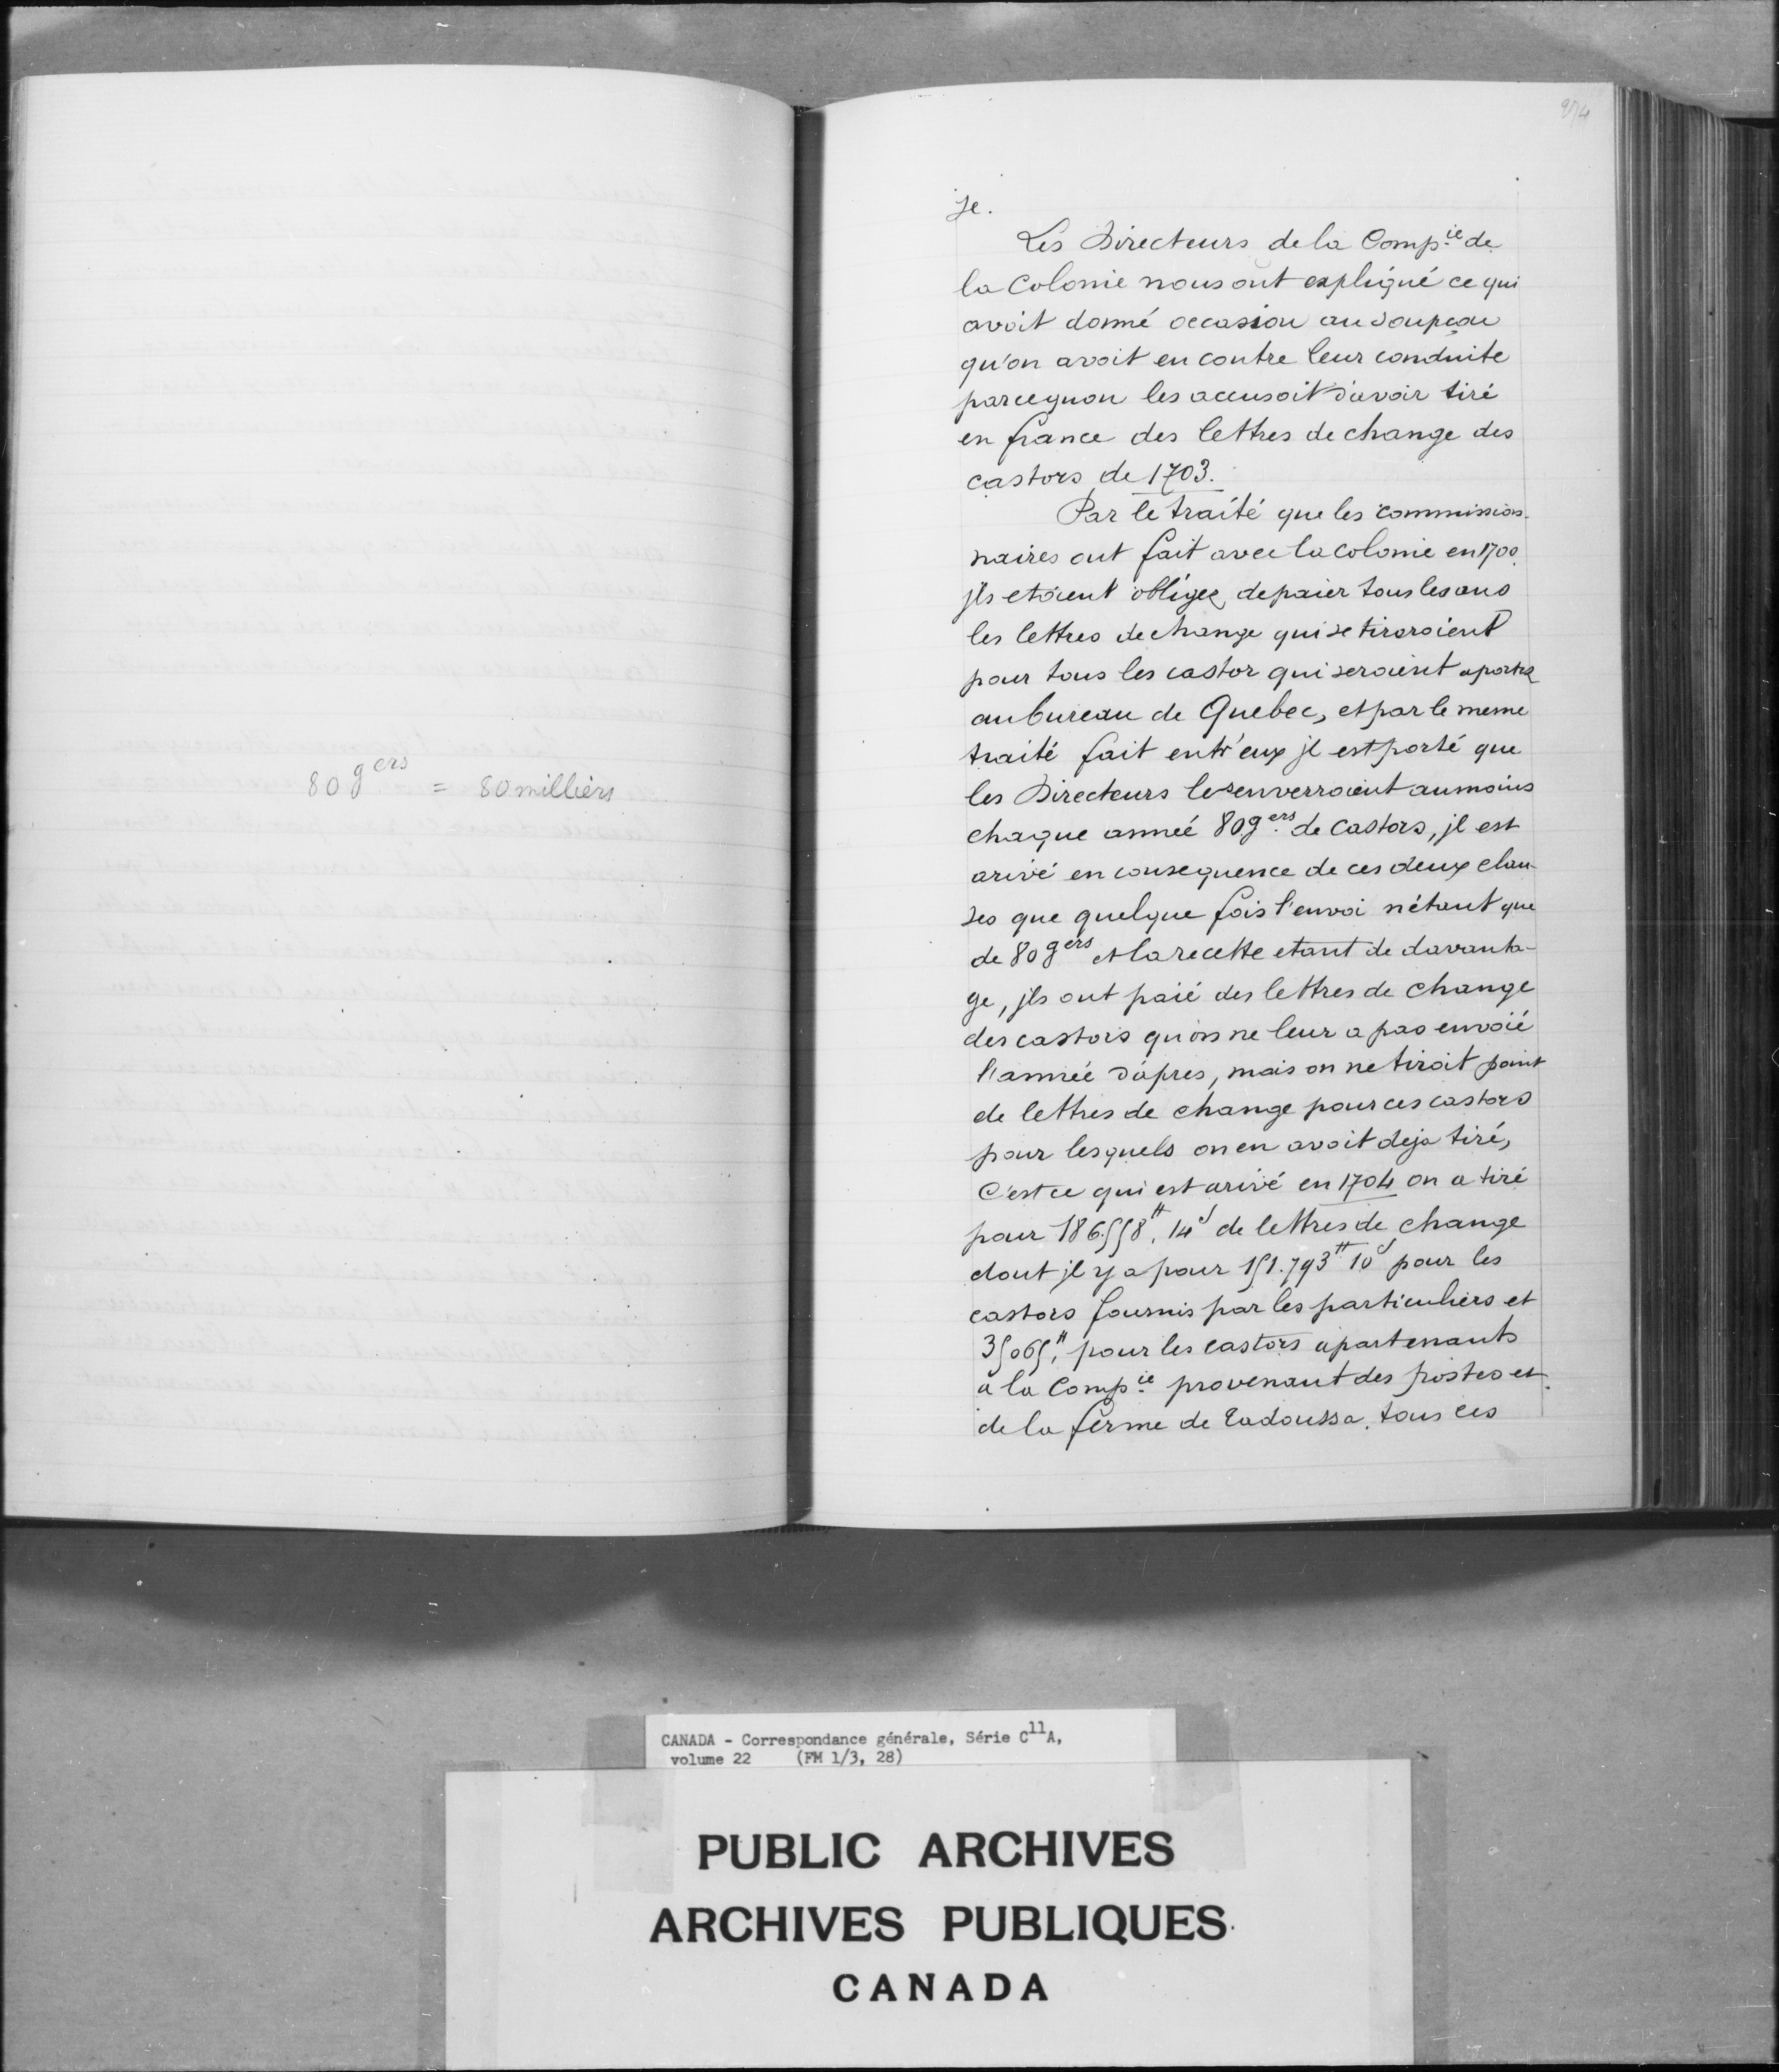 80 gers = 80 milliers
274
se.
Les Directeurs de la Compie de
la Colonie nous ont expliqué ce qui
avoit donné occasion au soupçon
qu'on avoit eu contre leur conduite
parcequon les accusoit d'avoir tiré
en france des lettres de change des
castors de 1703.
Par le traité que les commission-
naires ont fait avec la colonie en 1700
jls etoient obligez de paier tous les ans
les lettres de change qui se tireroient
pour tous les castor qui seroient aportez
au bureau de Quebec, et par le meme
traité fait entr'eux jl est porté que
les Directeurs les enverroient au moins
chaque année 80 gers de Castors, jl est
arivé en consequence de ces deux clau-
ses que quelque fois l'envoi n'étant que
de 80 gers et la recette etant de davanta-
ge, jls ont paié des lettres de change
des castors qu'on ne leur a pas envoié
l'année d'apres, mais on ne tiroit point
de lettres de change pour ces castors
pour lesquels on en avoit deja tiré,
C'est ce qui est arivé en 1704 on a tiré
pour 186.558₶. 14s de lettres de change
dont jl y a pour 151.793₶ 10s pour les
castors fournis par les particuliers et
35065₶, pour les castors apartenants
à la Compie provenant des postes et
de la ferme de Tadoussa. tous ces
CANADA - Correspondance générale, Série C11A,
volume 22 (FM 1/3, 28)
PUBLIC ARCHIVES
ARCHIVES PUBLIQUES
CANADA